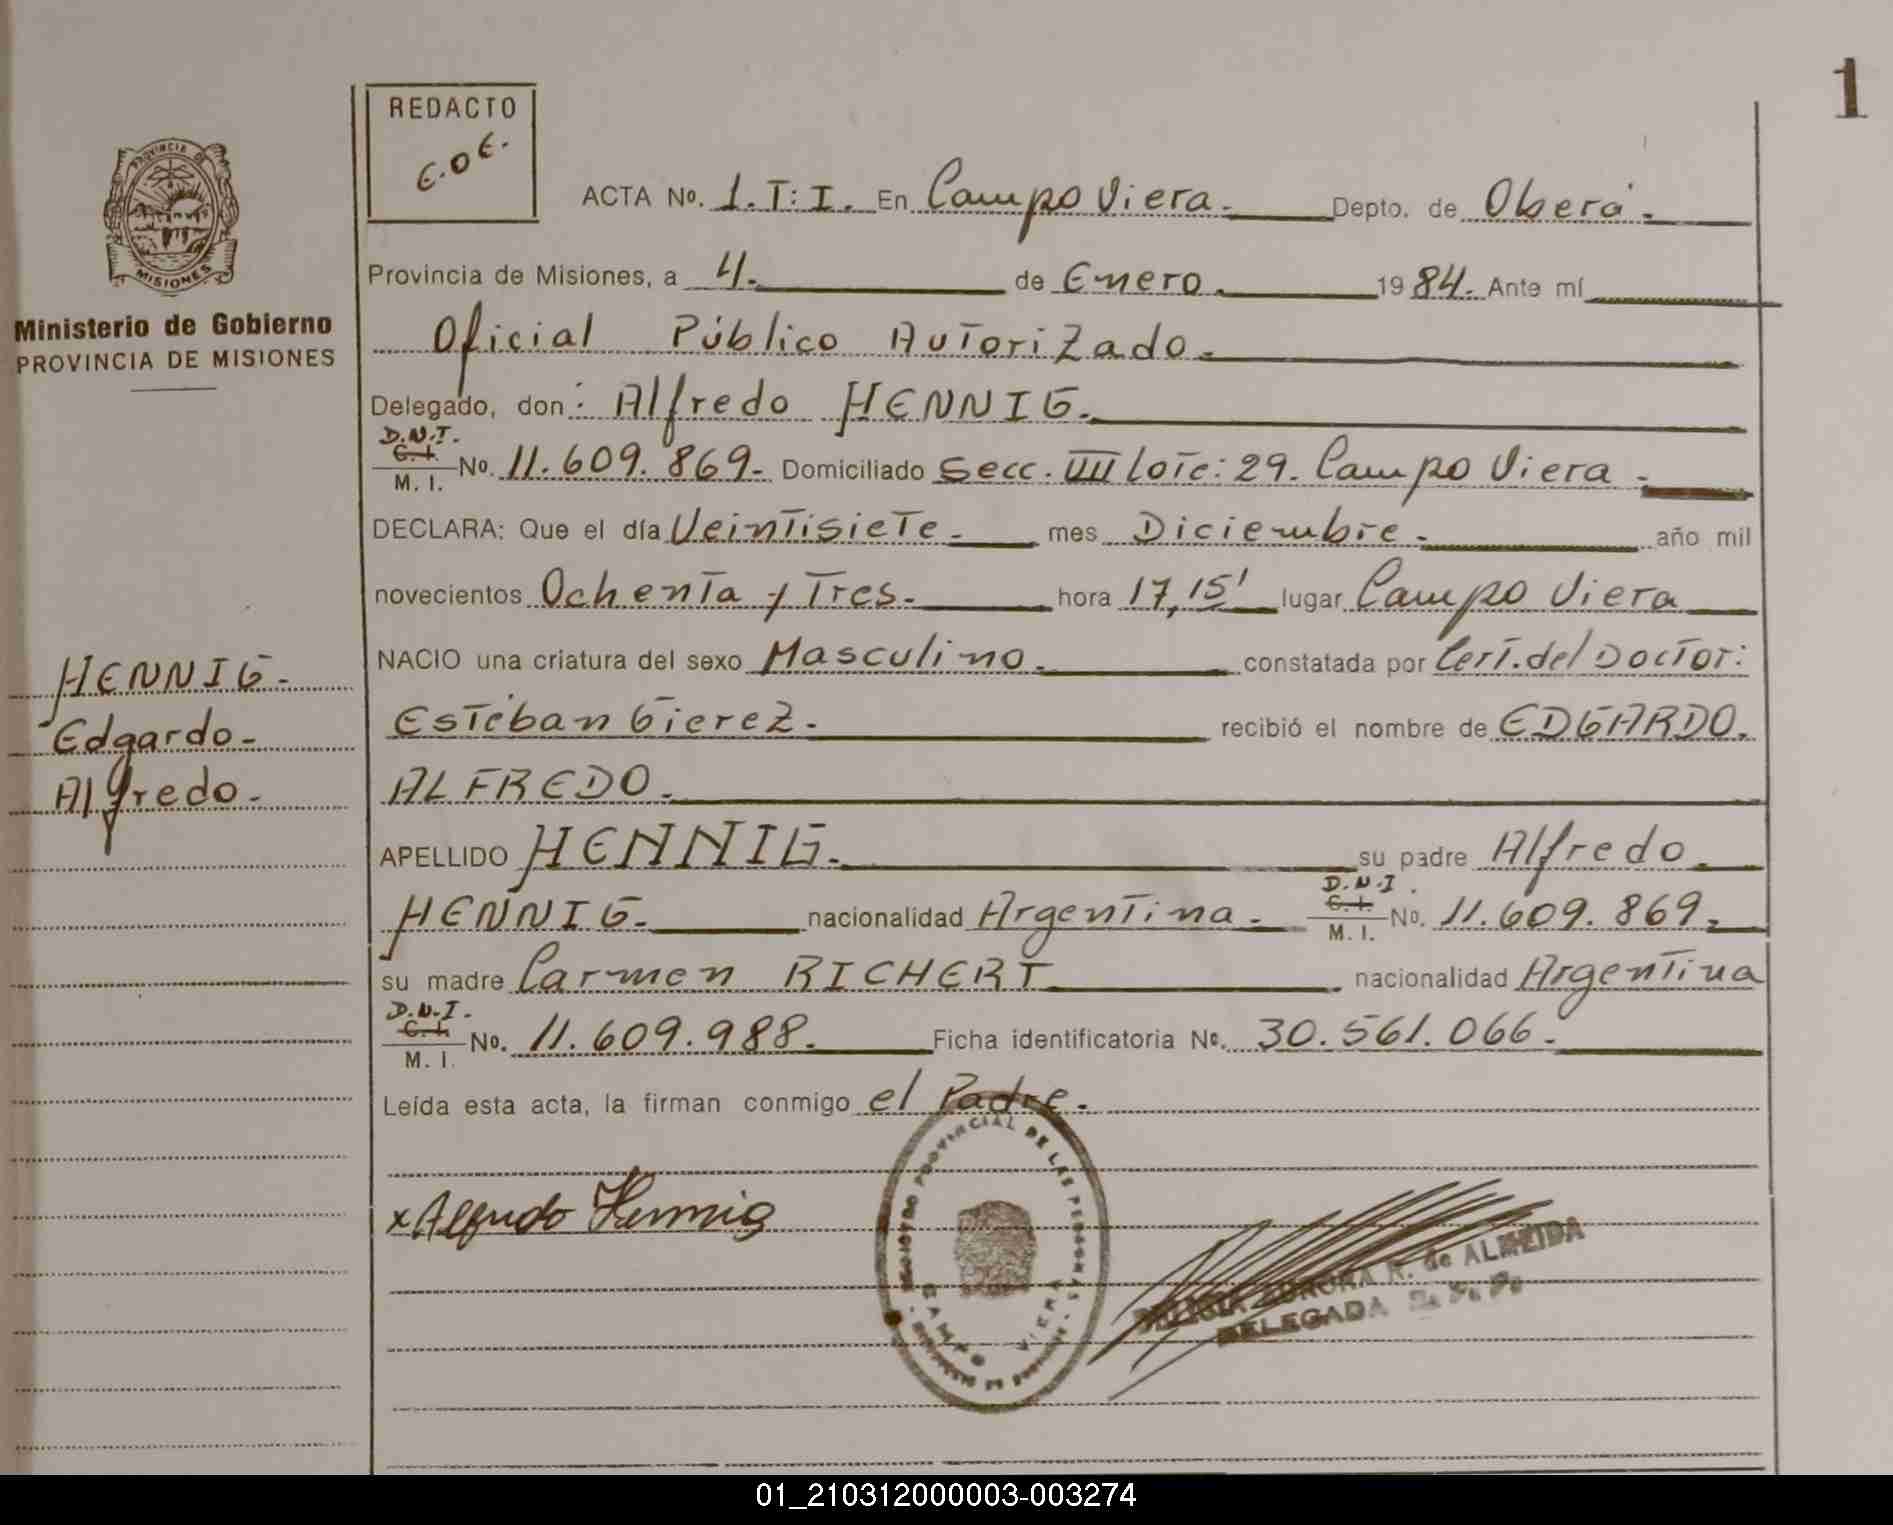 1
REDACTO
E.O.E.
PROVINCIA DE
MISIONES
Ministerio de Gobierno
PROVINCIA DE MISIONES
ACTA No. 1.T:I. En Campo Viera. Depto. de Oberá.
Provincia de Misiones, a 4. de Enero. 1984. Ante mí
Oficial Público Autorizado.
Delegado, don: Alfredo HENNIG.
D.N.I.
C.I.
M. I. No. 11.609.869. Domiciliado Secc. VIII Lote: 29. Campo Viera.
DECLARA: Que el día Veintisiete. mes Diciembre. año mil
novecientos Ochenta y Tres. hora 17,15' lugar Campo Viera
NACIO una criatura del sexo Masculino. constatada por Cert. del Doctor:
Esteban Gierez. recibió el nombre de EDGARDO.
ALFREDO.
HENNIG.
Edgardo.
Alfredo.
APELLIDO HENNIG. su padre Alfredo.
HENNIG. nacionalidad Argentina. D.N.I. C.I. M. I. No. 11.609.869.
su madre Carmen RICHERT nacionalidad Argentina
D.N.I.
C.I.
M. I. No. 11.609.988. Ficha identificatoria No. 30.561.066.
Leída esta acta, la firman conmigo el Padre.
x Alfredo Hennig
REGISTRO PROVINCIAL DE LAS PERSONAS
CAMPO VIERA
AURORA R. de ALMEIDA
DELEGADA
01_210312000003-003274